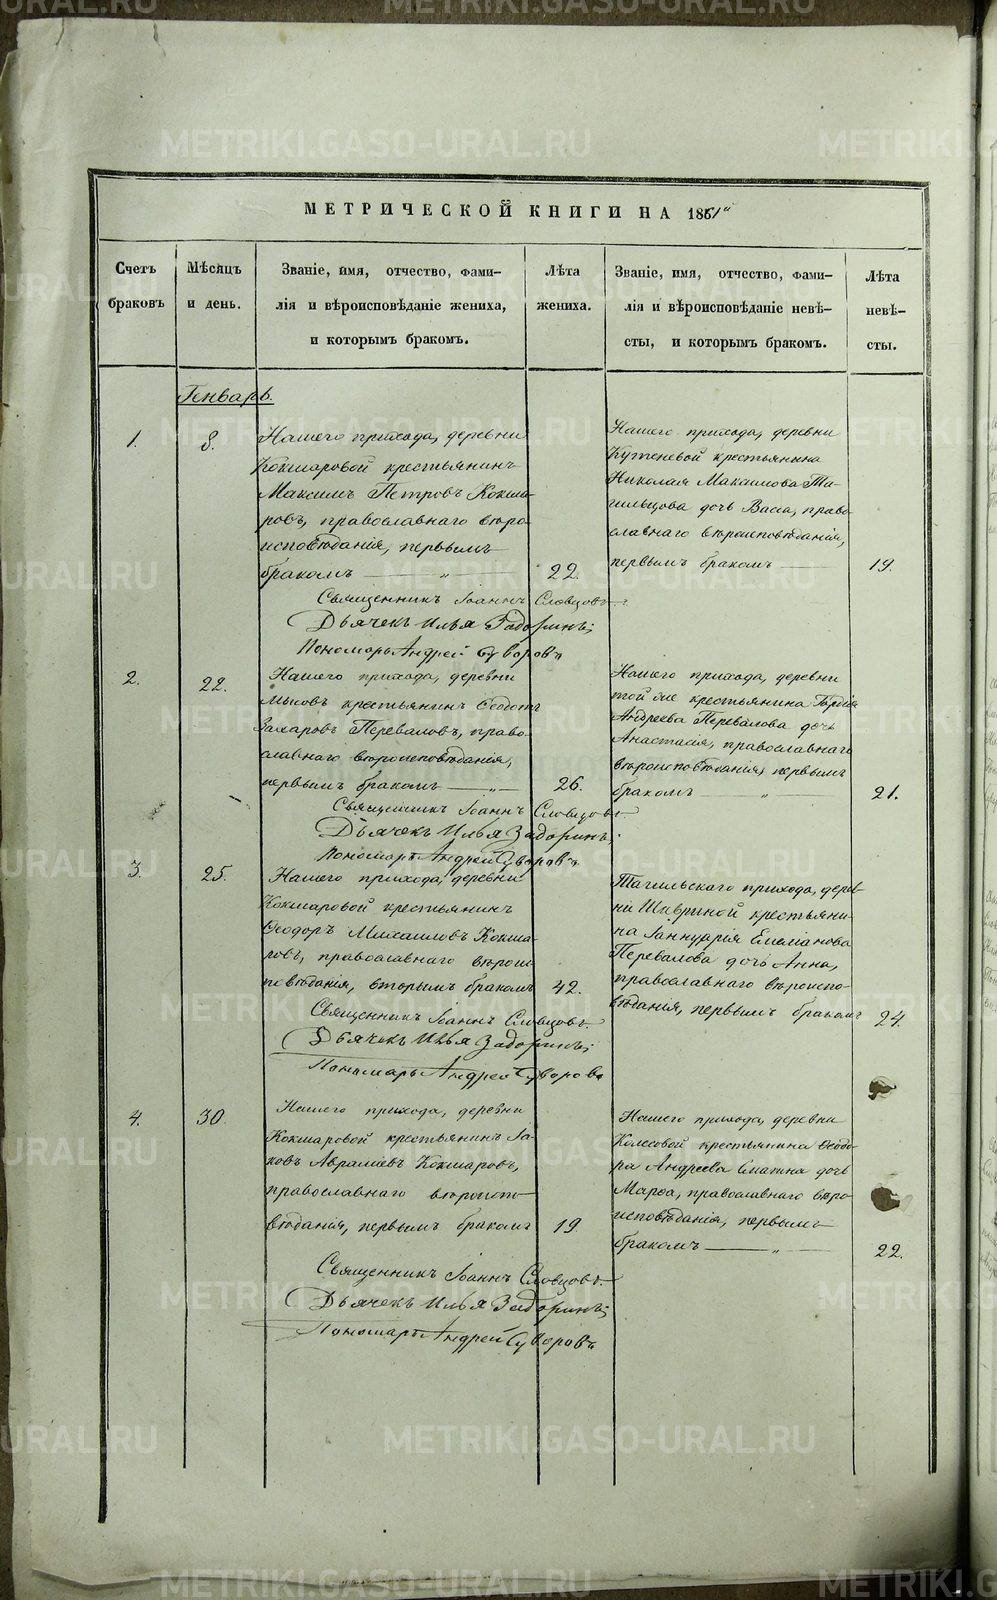 МЕТРИЧЕСКОЙ КНИГИ НА 1861"
Счетъ
браковъ
Мѣсяцъ
и день.
Званіе, имя, отчество, фами-
лія и вѣроисповѣданіе жениха,
и которымъ бракомъ.
Лѣта
жениха.
Званіе, имя, отчество, фами-
лія и вѣроисповѣданіе невѣ-
сты, и которымъ бракомъ.
Лѣта
невѣ-
сты.
Генварь.
1.
8.
Нашего прихода, деревни
Кокшаровой крестьянинъ
Максимъ Петровъ Кокша-
ровъ, православнаго вѣро-
исповѣданія, первымъ
бракомъ — „ —
22.
Нашего прихода, деревни
крестьянина
Николая Максимова Та-
гильцова дочь Васса, право-
славнаго вѣроисповѣданія,
первымъ бракомъ —
19.
Священникъ Іоаннъ Словцовъ.
Дьячекъ Илья Задоринъ;
Пономарь Андрей Суворовъ
2.
22.
Нашего прихода, деревни
крестьянинъ Ѳеодотъ
Захаровъ Переваловъ, право-
славнаго вѣроисповѣданія,
первымъ бракомъ — „ —
26.
Нашего прихода, деревни
той же крестьянина Гордія
Андреева Перевалова дочь
Анастасія, православнаго
вѣроисповѣданія, первымъ
бракомъ — „
21.
Священникъ Іоаннъ Словцовъ.
Дьячекъ Илья Задоринъ;
Пономарь Андрей Суворовъ
3.
25.
Нашего прихода, деревни
Кокшаровой крестьянинъ
Ѳеодоръ Михаиловъ Кокша-
ровъ, православнаго вѣроис-
повѣданія, вторымъ бракомъ
42.
Тагильскаго прихода, дерев-
ни Шавриной крестьяни-
на Іаннуарія Емеліанова
Перевалова дочь Анна,
православнаго вѣроиспо-
вѣданія, первымъ бракомъ
24.
Священникъ Іоаннъ Словцовъ
Дьячекъ Илья Задоринъ;
Пономарь Андрей Суворовъ
4.
30.
Нашего прихода, деревни
Кокшаровой крестьянинъ Іа-
ковъ Авраміевъ Кокшаровъ,
православнаго вѣроиспо-
вѣданія, первымъ бракомъ
19.
Нашего прихода, деревни
Колесовой крестьянина Ѳеодо-
ра Андреева дочь
Марѳа, православнаго вѣро-
исповѣданія, первымъ
бракомъ — „ —
22.
Священникъ Іоаннъ Словцовъ.
Дьячекъ Илья Задоринъ;
Пономарь Андрей Суворовъ
METRIKI.GASO-URAL.RU